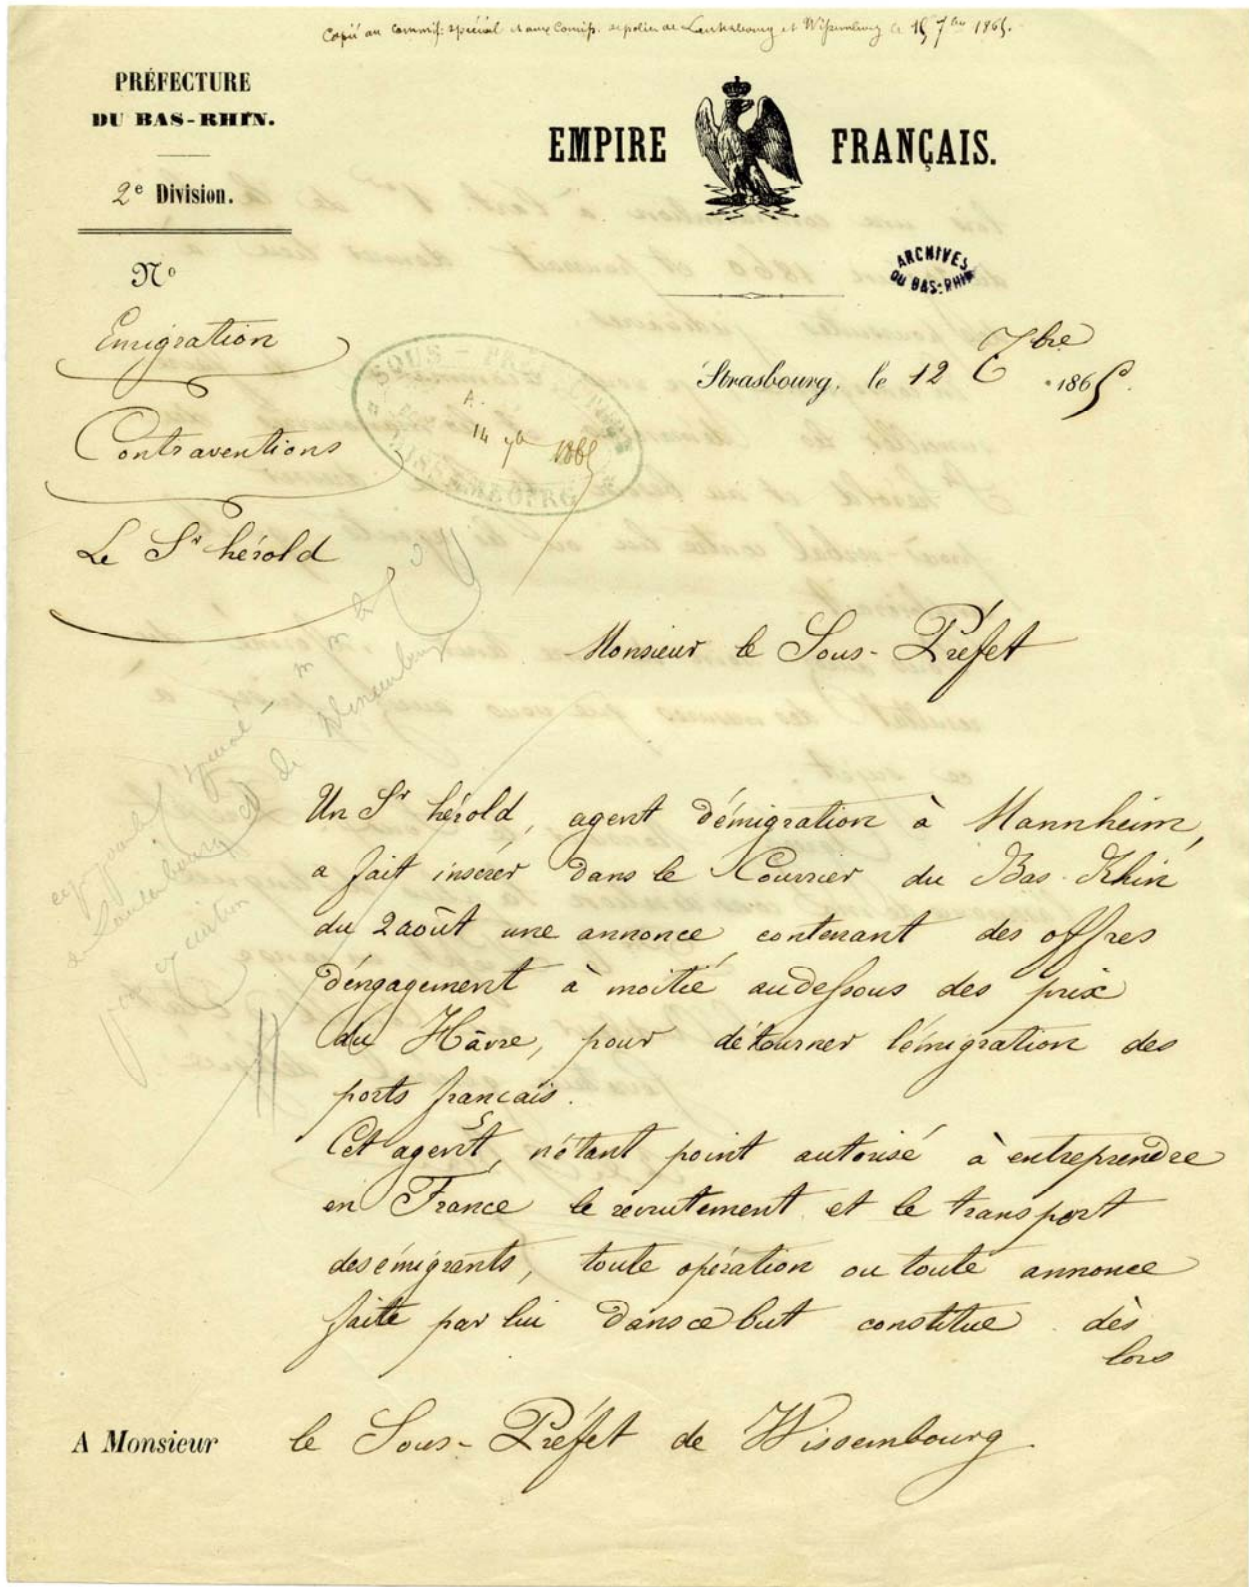 Copié au commiss: spécial et aux Comiss. de police de Lauterbourg et Wissembourg le 15 7bre 1865.
PRÉFECTURE
DU BAS-RHIN.
2e Division.
EMPIRE FRANÇAIS.
ARCHIVES
DU BAS-RHIN
No
Emigration
Contraventions
Le Sr hérold
SOUS-PRÉFECTURE
A.
14 7bre 1865
WISSEMBOURG
Strasbourg, le 12 7bre 1865.
Monsieur le Sous-Préfet
spécial
de Lauterbourg et de Wissembourg
Un Sr hérold, agent d'émigration à Mannheim,
a fait insérer dans le Courrier du Bas-Rhin
du 2 août une annonce contenant des offres
d'engagement à moitié audessous des prix
du Hâvre, pour détourner l'émigration des
ports français.
Cet agent, n'étant point autorisé à entreprendre
en France le recrutement et le transport
des émigrants, toute opération ou toute annonce
faite par lui dans ce but constitue dès
lors
A Monsieur le Sous-Préfet de Wissembourg.